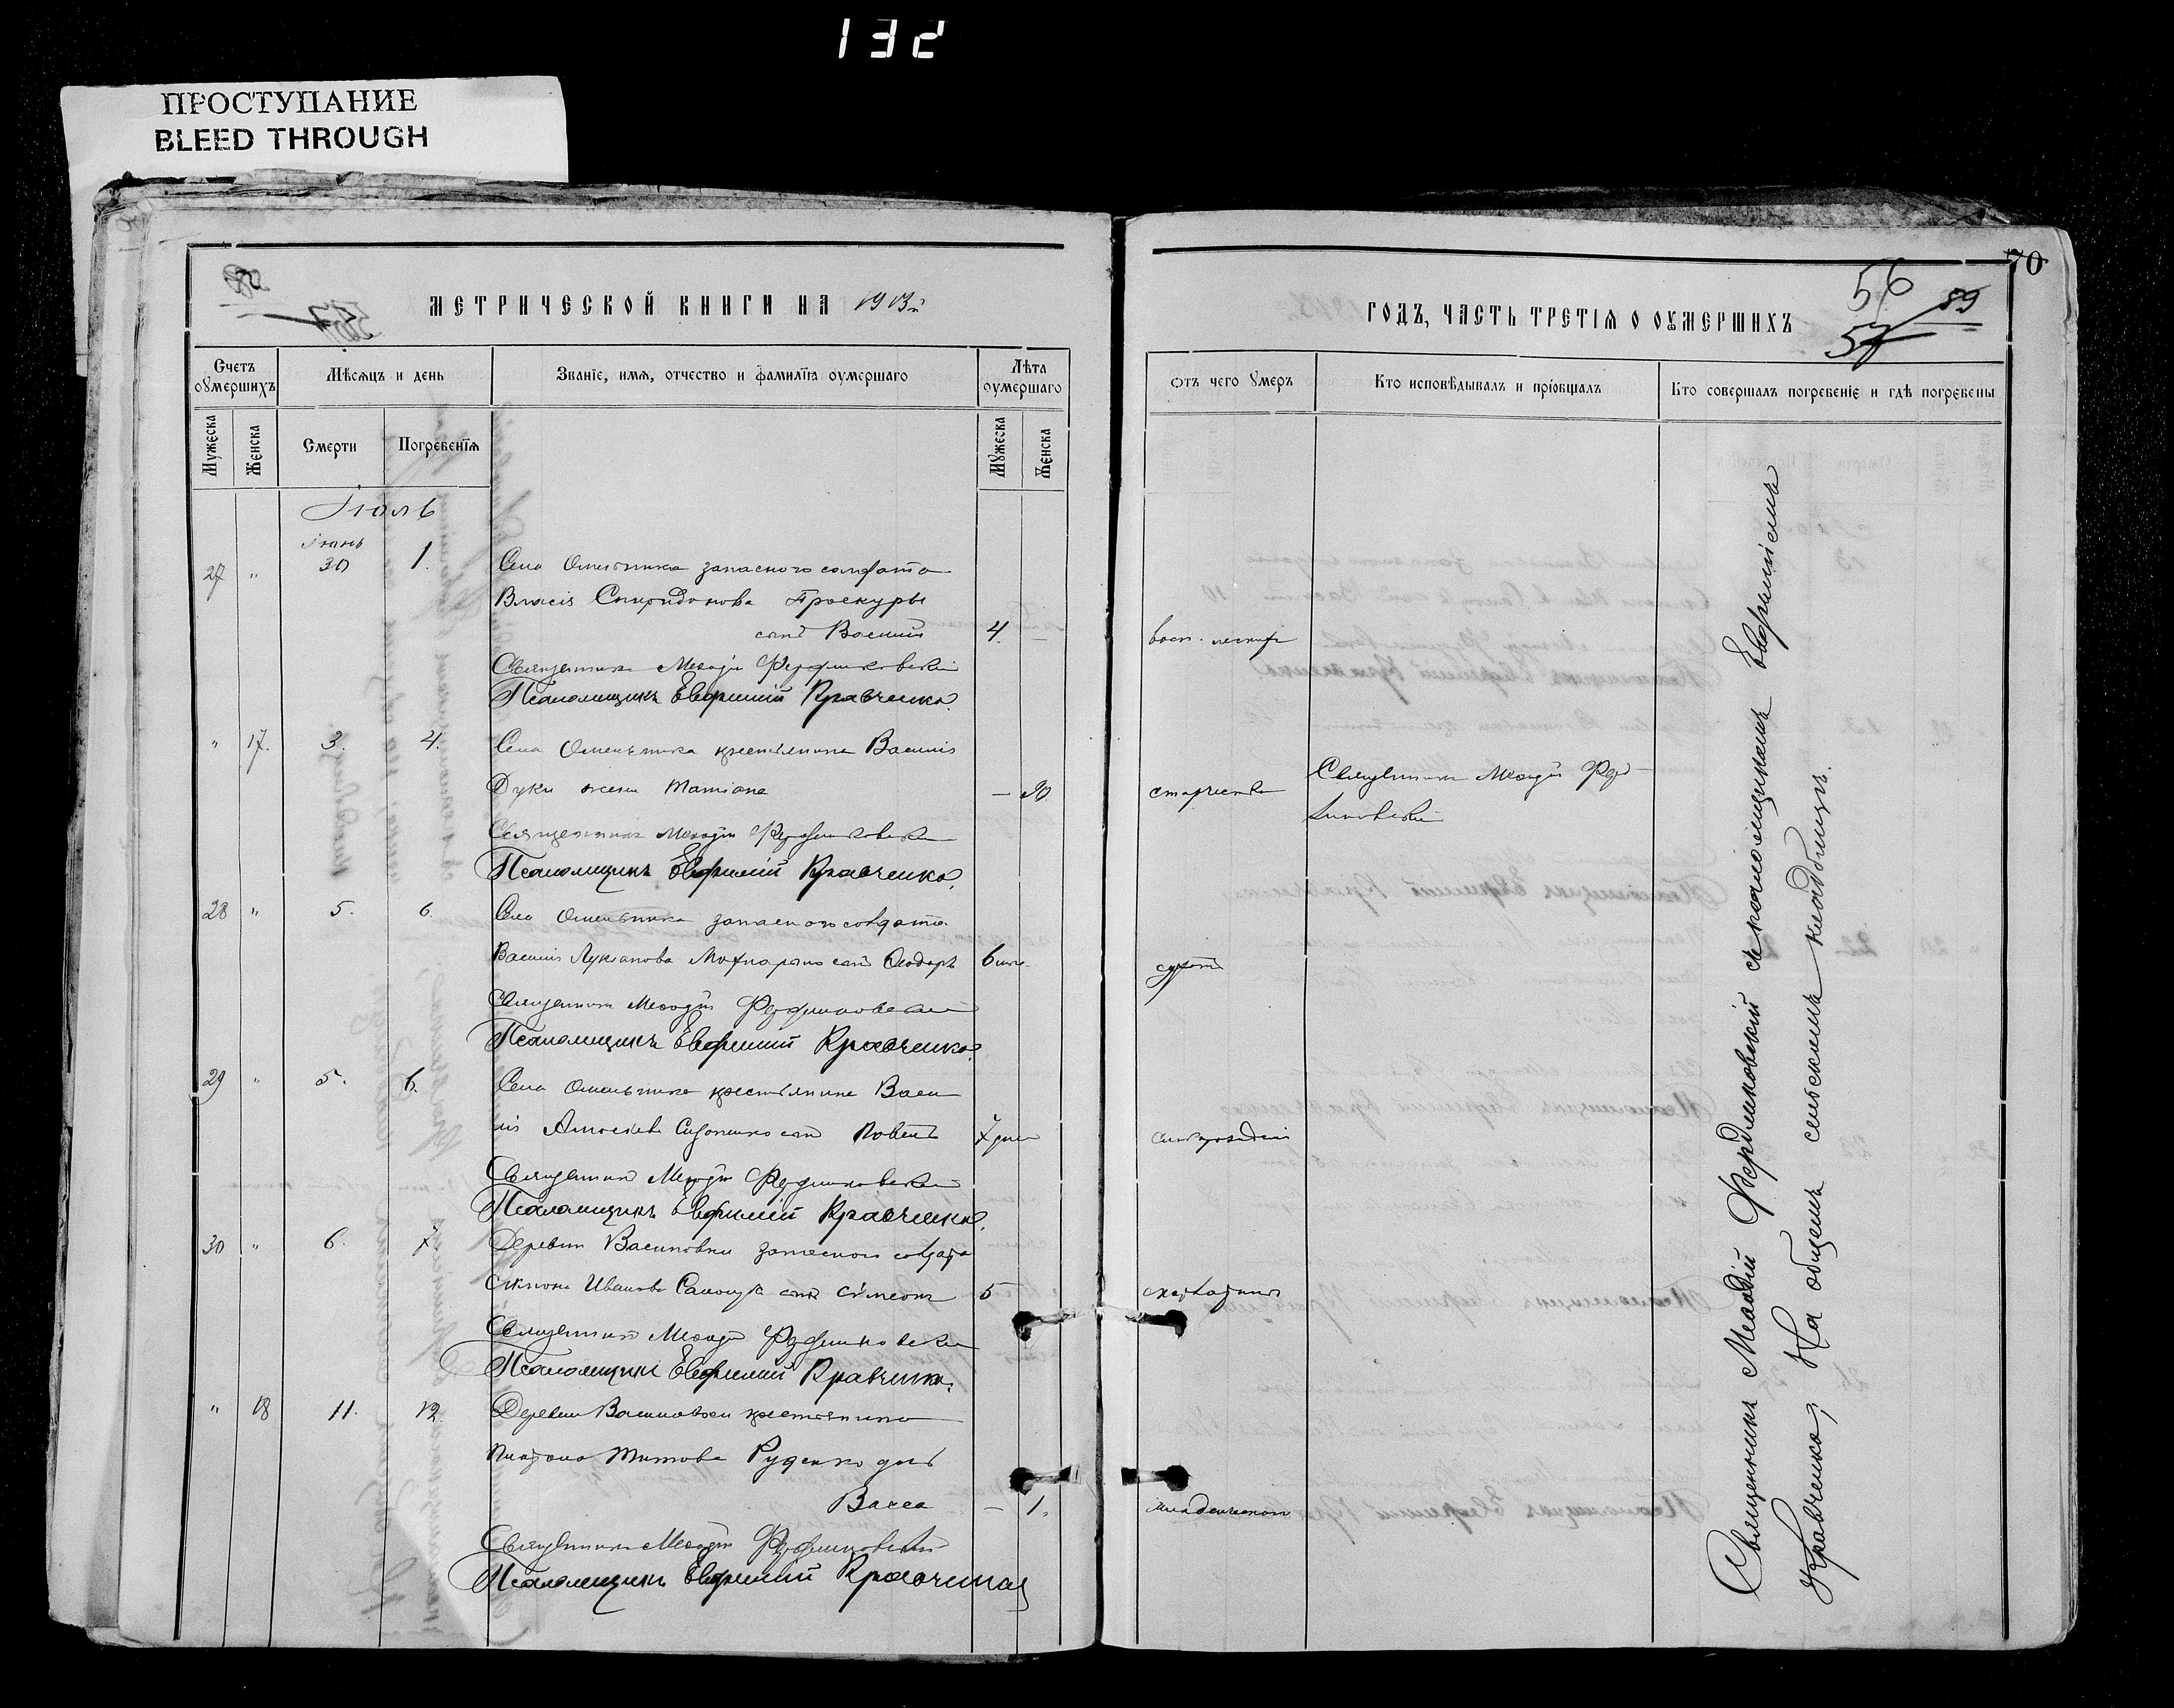 132
ПРОСТУПАНИЕ
BLEED THROUGH
МЕТРИЧЕСКОЙ КНИГИ НА 1913й
ГОДЪ, ЧАСТЬ ТРЕТІЯ О ОУМЕРШИХЪ
70
56
57
89
Счетъ оумершихъ
Мѣсяцъ и день
Званіе, имя, отчество и фамилія оумершаго
Лѣта оумершаго
Отъ чего умеръ
Кто исповѣдывалъ и пріобщалъ
Кто совершалъ погребеніе и гдѣ погребены
Мужеска
Женска
Смерти
Погребенія
Мужеска
Женска
Іюль
Іюнь
27 " 30 1. Села Омельника запасного солдата
Власія Спиридонова Проскуры
сынъ Василій 4. — восп. легкихъ
Священникъ Меѳодій Фердликовскій
Псаломщикъ Евфимій Кравченко.
" 17. 3. 4. Села Омельника крестьянина Василія
Дуки жена Татіана — 90. старчества Священникъ Меѳодій Ферд-
ликовскій
Священникъ Меѳодій Фердликовскій
Псаломщикъ Евфимій Кравченко.
28 " 5. 6. Села Омельника запасного солдата
Василія Лукіанова сынъ Ѳеодоръ 6
Священникъ Меѳодій Фердликовскій
Псаломщикъ Евфимій Кравченко.
29 " 5. 6. Села Омельника крестьянина Васи
лія сынъ Павелъ 7 дней
Священникъ Меѳодій Фердликовскій
Псаломщикъ Евфимій Кравченко.
30 " 6. 7 Деревни Василовки запасного солдата
Иванова сынъ Сѵмеонъ 5 скарлатина
Священникъ Меѳодій Фердликовскій
Псаломщикъ Евфимій Кравченко.
" 18 11. 12. Деревни Василовки крестьянина
Титова Руденко дочь
Васса — 1. младенческой
Священникъ Меѳодій Фердликовскій
Псаломщикъ Евфимій Кравченко
Священникъ Меѳодій Фердликовскій съ псаломщикомъ Евфиміемъ
Кравченко, На общемъ сельскомъ кладбищѣ.